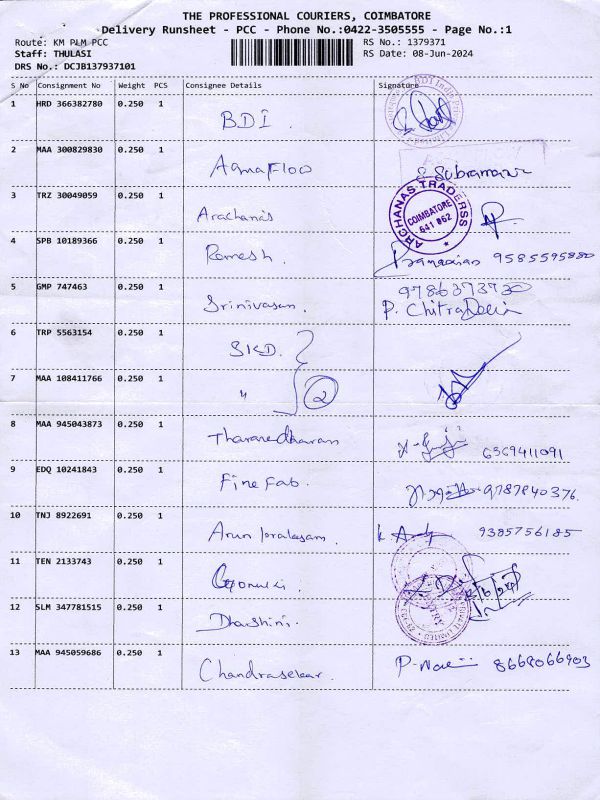 THE PROFESSIONAL COURIERS, COIMBATORE
Delivery Runsheet - PCC - Phone No.:0422-3505555 - Page No.:1
Route: KM PLM PCC RS No.: 1379371
Staff: THULASI RS Date: 08-Jun-2024
DRS No.: DCJB137937101
S No Consignment No Weight PCS Consignee Details Signature
1 HRD 366382780 0.250 1 BDI.
2 MAA 300829830 0.250 1 AquaFloo S. Subramani
3 TRZ 30049059 0.250 1 Arachanas ARCHANAS TRADERSS COIMBATORE 641 062
4 SPB 10189366 0.250 1 Ramesh. 9585595880
5 GMP 747463 0.250 1 Srinivasan. 9786373730
P. ChitraDevi
6 TRP 5563154 0.250 1 SKD.
7 MAA 108411766 0.250 1 " 2
8 MAA 945043873 0.250 1 6369411091
9 EDQ 10241843 0.250 1 Fine Fab. 9787840376.
10 TNJ 8922691 0.250 1 Arun 9385756185
11 TEN 2133743 0.250 1
12 SLM 347781515 0.250 1 Dharshini.
13 MAA 945059686 0.250 1 Chandrasekar. 8668066903